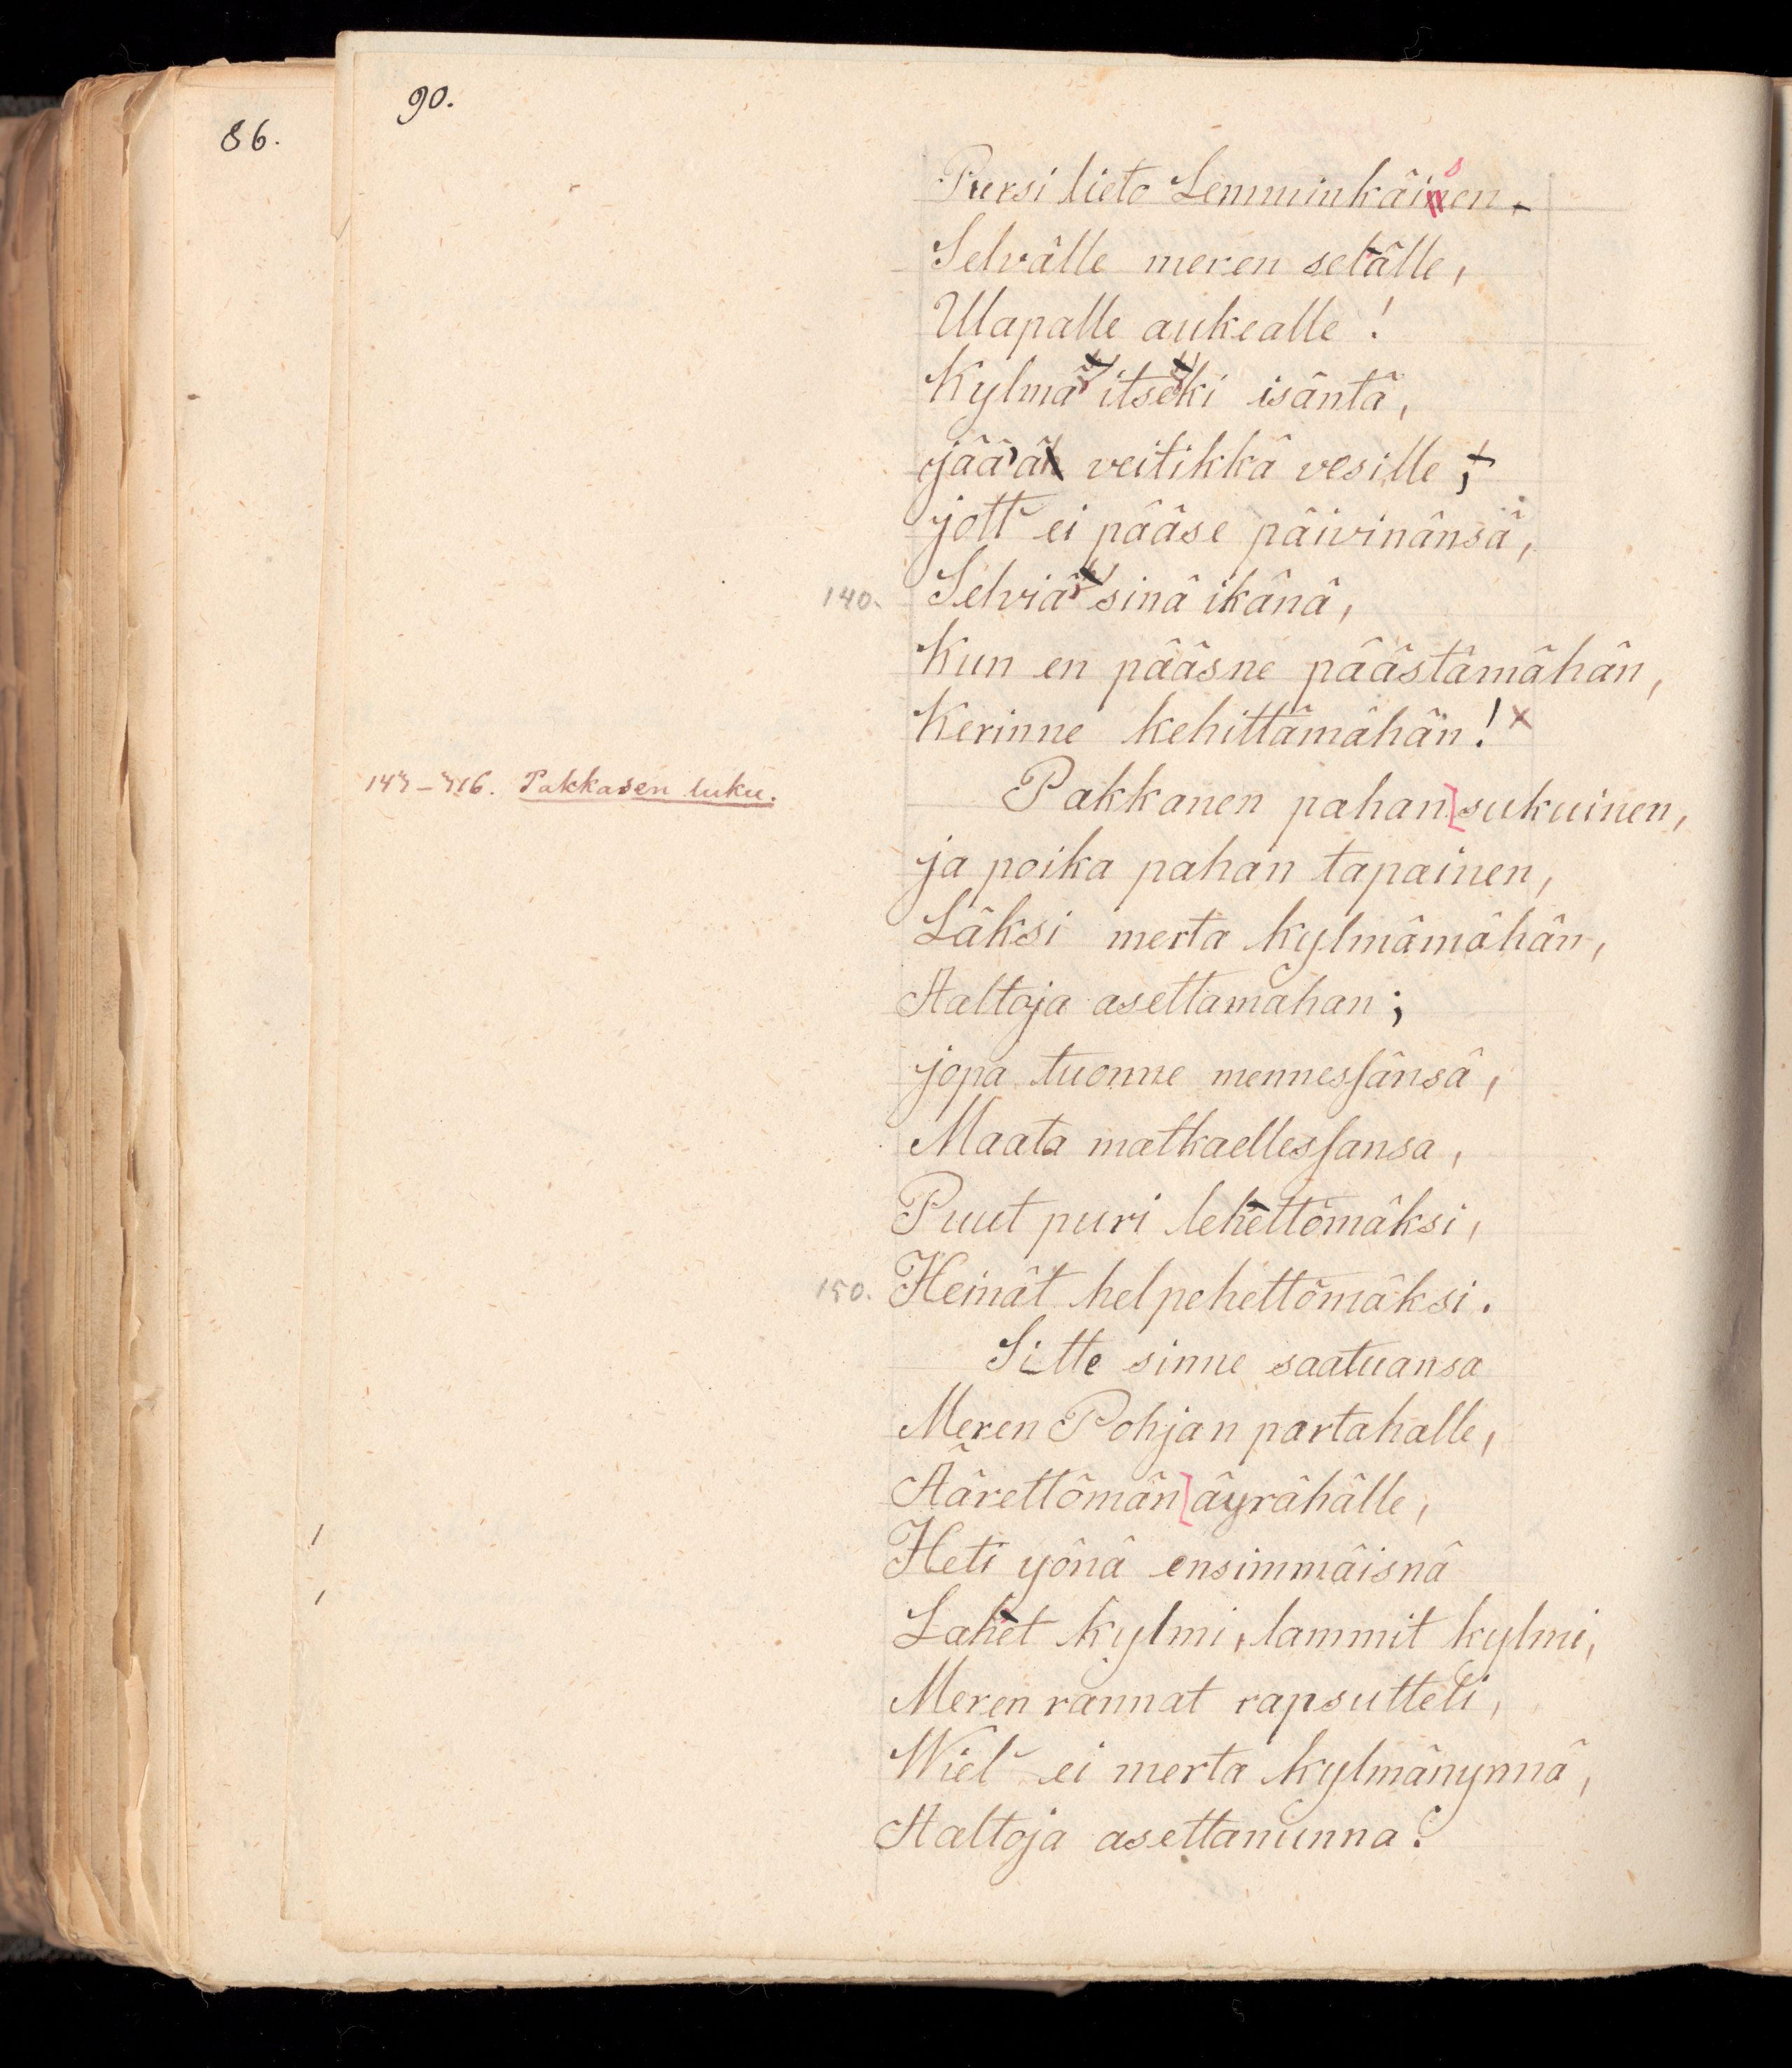 86.
90.
Pursi lieto Lemminkäisen
Selvälle meren selälle,
Ulapalle aukealle!
Kylmä itseki isäntä,
jäää veitikkä vesille,
jott' ei pääse päivinänsä,
140. Selviä sinä ikänä,
Kun en pääsne päästämähän,
Kerinne kehittämähän! x
143–316. Pakkasen luku.
Pakkanen pahan[sukuinen,
ja poika pahan tapainen,
Läksi merta kylmämähän,
Aaltoja asettamahan;
jopa tuonne mennessänsä,
Maata matkaellessansa,
Puut puri lehettömäksi,
150. Heinät helpehettömäksi.
Sitte sinne saatuansa
Meren Pohjan partahalle,
Äärettömän[äyrähälle,
Heti yönä ensimmäisnä
Lahet kylmi, lammit kylmi,
Meren rannat rapsutteli,
Wiel' ei merta kylmänynnä,
Aaltoja asettanunna.